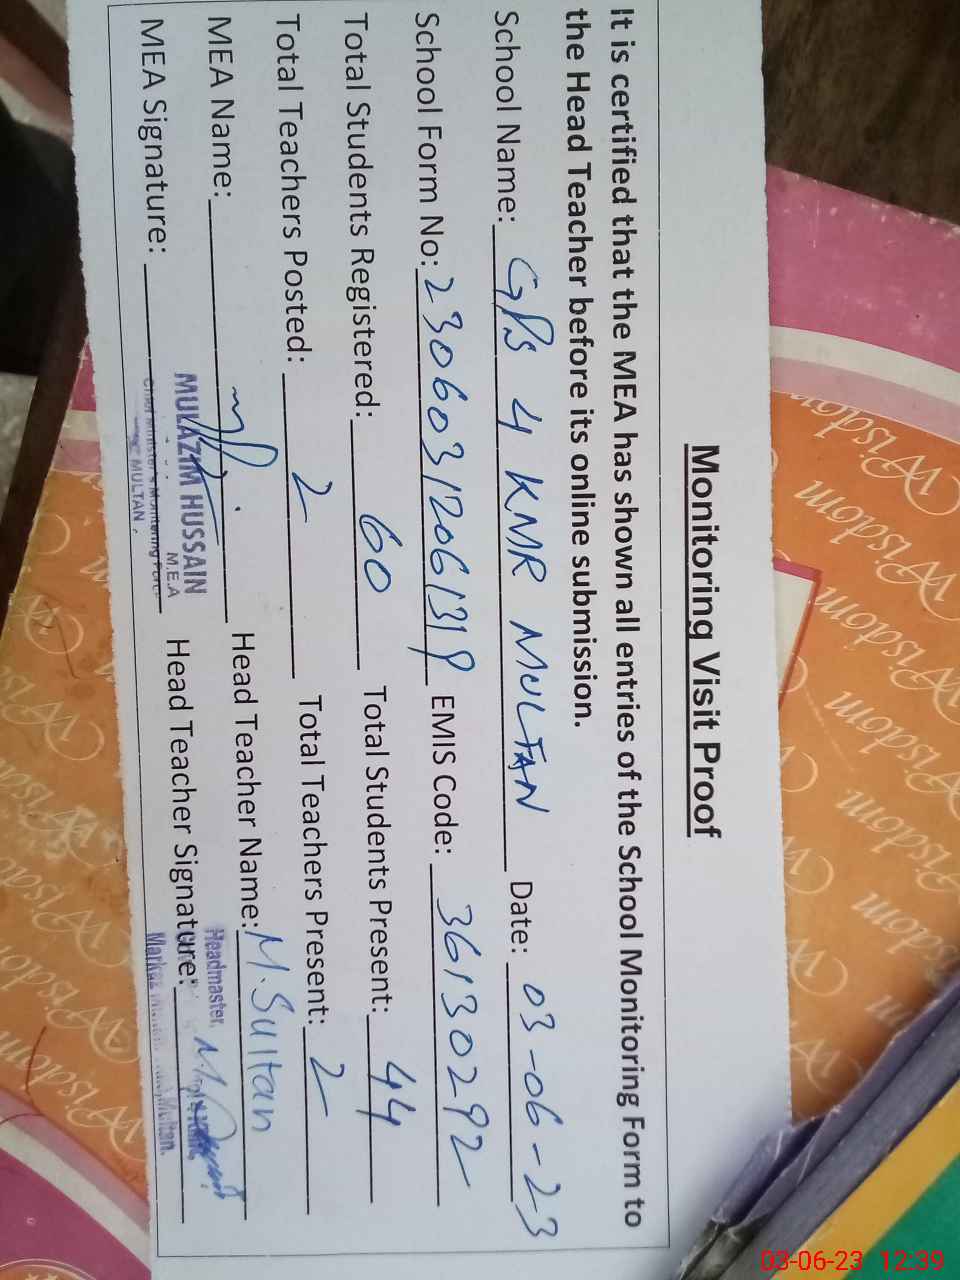 Monitoring Visit Proof
It is certified that the MEA has shown all entries of the School Monitoring Form to
the Head Teacher before its online submission.
School Name: GPS 4 KMR MULTAN Date: 03-06-23
School Form No: EMIS Code: 36130292
Total Students Registered: 60 Total Students Present: 44
Total Teachers Posted: 2 Total Teachers Present: 2
MEA Name: Head Teacher Name: M.Sultan
MULAZIM HUSSAIN
M.E.A
Chief Minister's Monitoring Force
MULTAN.
MEA Signature: Head Teacher Signature:
Headmaster,
Markaz Multan.
Wisdom
Wisdom
Wisdom
Wisdom
03-06-23 12:39